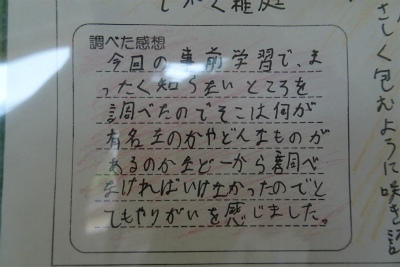 調べた感想
今回の事前学習で、ま
ったく知らないところを
調べたのでそこは何が
有名なのかやどんなものが
あるのかなど一から調べ
なければいけなかったのでと
てもやりがいを感じました。
さしく包むように咲き